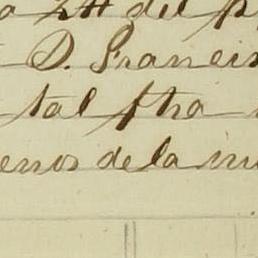 24 del
D. Francis
tal fha
enos de la mi